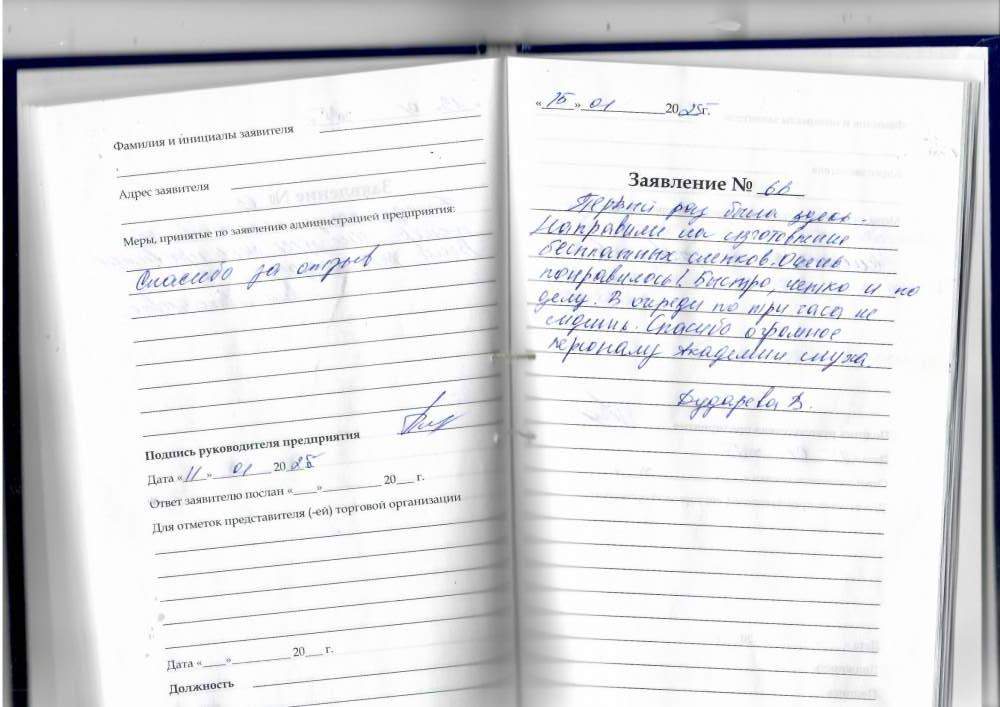 Фамилия и инициалы заявителя
Адрес заявителя
Меры, принятые по заявлению администрацией предприятия:
Спасибо за отзыв
Подпись руководителя предприятия
Дата «11» 01 2025
Ответ заявителю послан «___»__________ 20___ г.
Для отметок представителя (-ей) торговой организации
Дата «____»__________ 20___ г.
Должность
«15» 01 2025г.
Заявление №
Первый раз была здесь.
Направили на изготовление
бесплатных слепков. Очень
понравилось! Быстро, четко и по
делу. В очереди по три часа не
сидишь. Спасибо огромное
персоналу Академии слуха.
Бударева В.